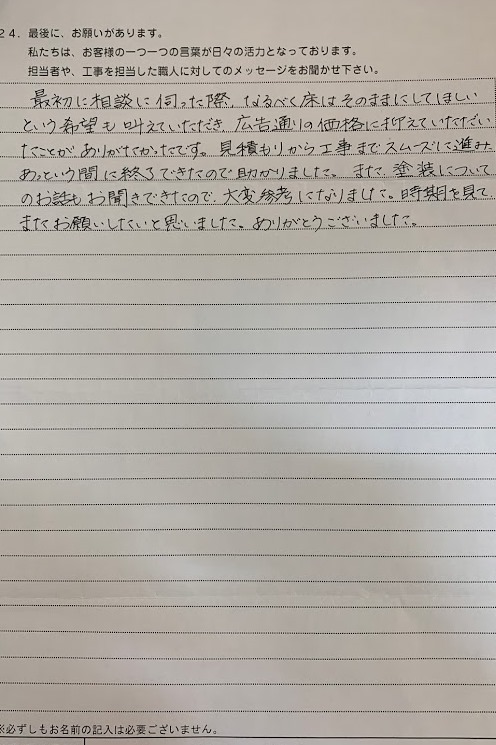 24. 最後に、お願いがあります。
私たちは、お客様の一つ一つの言葉が日々の活力となっております。
担当者や、工事を担当した職人に対してのメッセージをお聞かせ下さい。
最初に相談に伺った際、なるべく床はそのままにしてほしい
という希望も叶えていただき、広告通りの価格に抑えていただい
たことがありがたかったです。見積もりから工事までスムーズに進み
あっという間に終了できたので助かりました。また、塗装について
のお話もお聞きできたので、大変参考になりました。時期を見て
またお願いしたいと思いました。ありがとうございました。
※必ずしもお名前の記入は必要ございません。